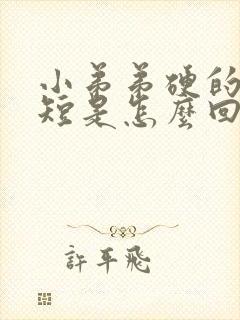 小弟弟硬的
短是怎麼回
許平飛